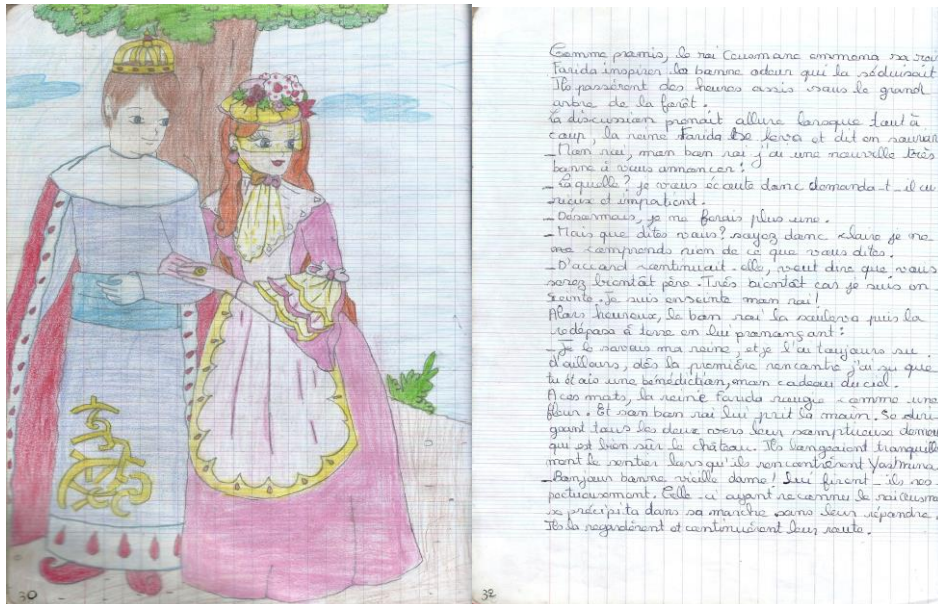 30
Comme promis, le roi Cousmane emmena sa roi
Farida inspirer la bonne odeur qui la séduisait
Ils passèrent des heures assis sous le grand
arbre de la forêt.
La discussion prenait allure lorsque tout à
coup, la reine Farida se leva et dit en souriant
_Mon roi, mon bon roi j'ai une nouvelle très
bonne à vous annoncer!
_ Laquelle? je vous écoute donc demanda-t-il cu
rieux et impatient.
_Désormais, je ne ferais plus une.
_Mais que dites vous? soyez donc claire je ne
comprends rien de ce que vous dites.
_D'accord continuait-elle, veut dire que vous
serez bientôt père. Très bientôt car je suis en
ceinte. Je suis enseinte mon roi!
Alors heureux, le bon roi la souleva puis la
redéposa à terre en lui prononçant:
_Je le savais ma reine, et je l'ai toujours su.
d'ailleurs, dès la première rencontre j'ai su que
tu étais une bénédiction, mon cadeau du ciel.
A ces mots, la reine Farida rougie comme une
fleur. Et son bon roi lui prit la main. Se diri
geant tous les deux vers leur somptueuse demeu
qui est bien sûr le château. Ils longeaient tranquille
ment le sentier lorsqu'ils rencontrèrent Yasmina
_Bonjour bonne vieille dame! Lui firent-ils res
pectueusement. Celle-ci ayant reconnu le roi
se précipita dans sa marche sans leur répondre.
Ils la regardèrent et continuèrent leur route.
32